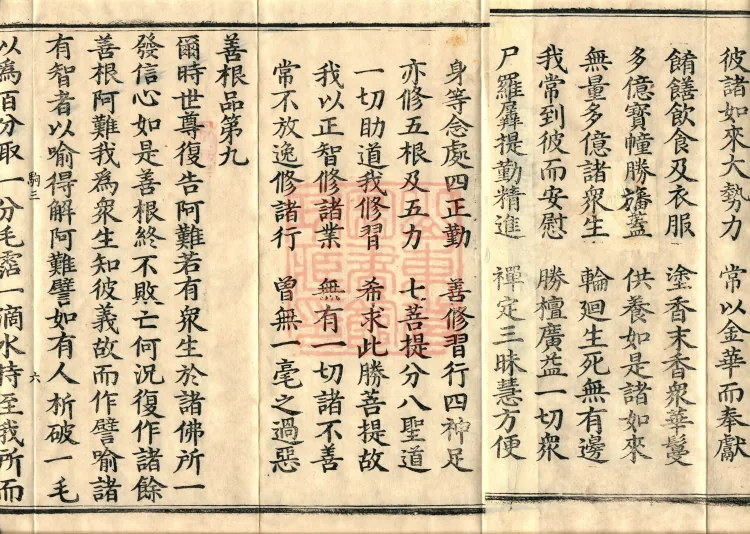 彼諸如來大勢力　常以金華而奉獻
餚饍飲食及衣服　塗香末香衆華鬘
多億寶幢勝旛蓋　供養如是諸如來
無量多億諸衆生　輪廻生死無有邊
我常到彼而安慰　勝檀廣益一切衆
尸羅羼提勤精進　禪定三昧慧方便
身等念處四正勤　善修習行四神足
亦修五根及五力　七菩提分八聖道
一切助道我修習　希求此勝菩提故
我以正智修諸業　無有一切諸不善
常不放逸修諸行　曾無一毫之過惡
善根品第九
爾時世尊復告阿難若有衆生於諸佛所一
發信心如是善根終不敗亡何況復作諸餘
善根阿難我爲衆生知彼義故而作譬喻諸
有智者以喻得解阿難譬如有人析破一毛
駒三　六
以爲百分取一分毛霑一滴水持至我所而